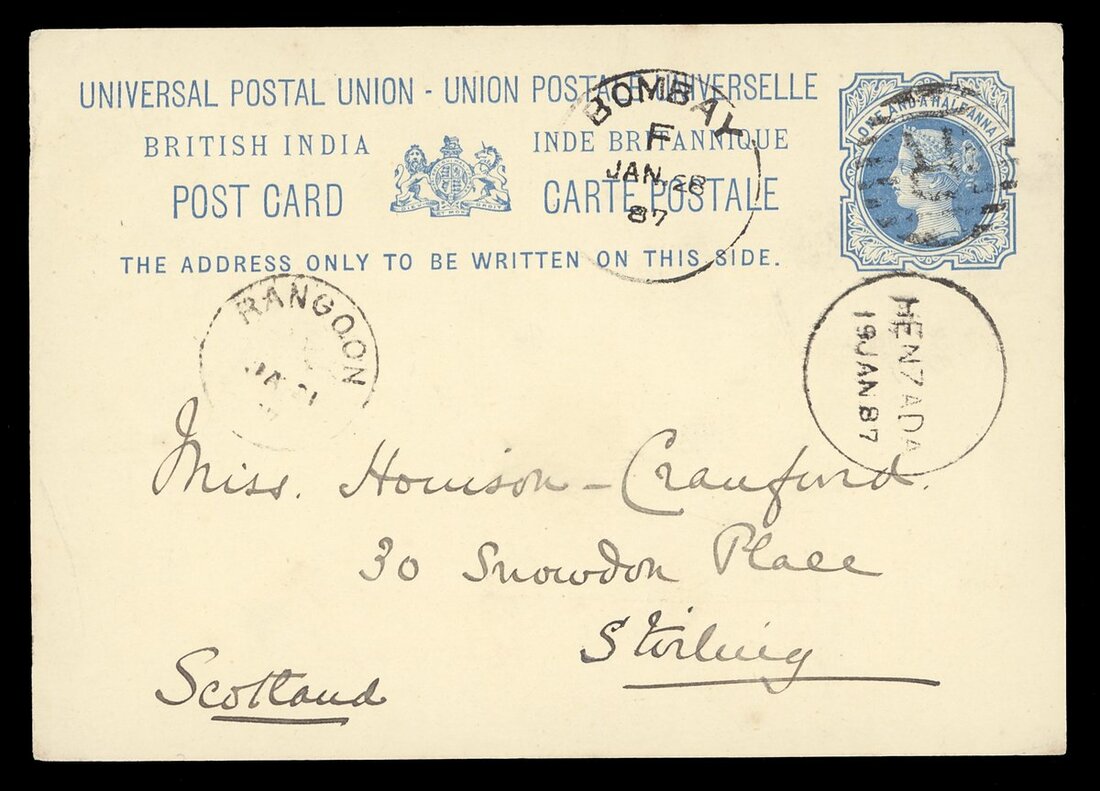 UNIVERSAL POSTAL UNION - UNION POSTALE UNIVERSELLE
BRITISH INDIA INDE BRITANNIQUE
POST CARD CARTE POSTALE
THE ADDRESS ONLY TO BE WRITTEN ON THIS SIDE.
ONE AND A HALF ANNA
BOMBAY
F
JAN. 28
87
RANGOON
JA 21
HENZADA
19 JAN 87
Miss. Houison - Craufurd.
30 Snowdon Place
Stirling
Scotland